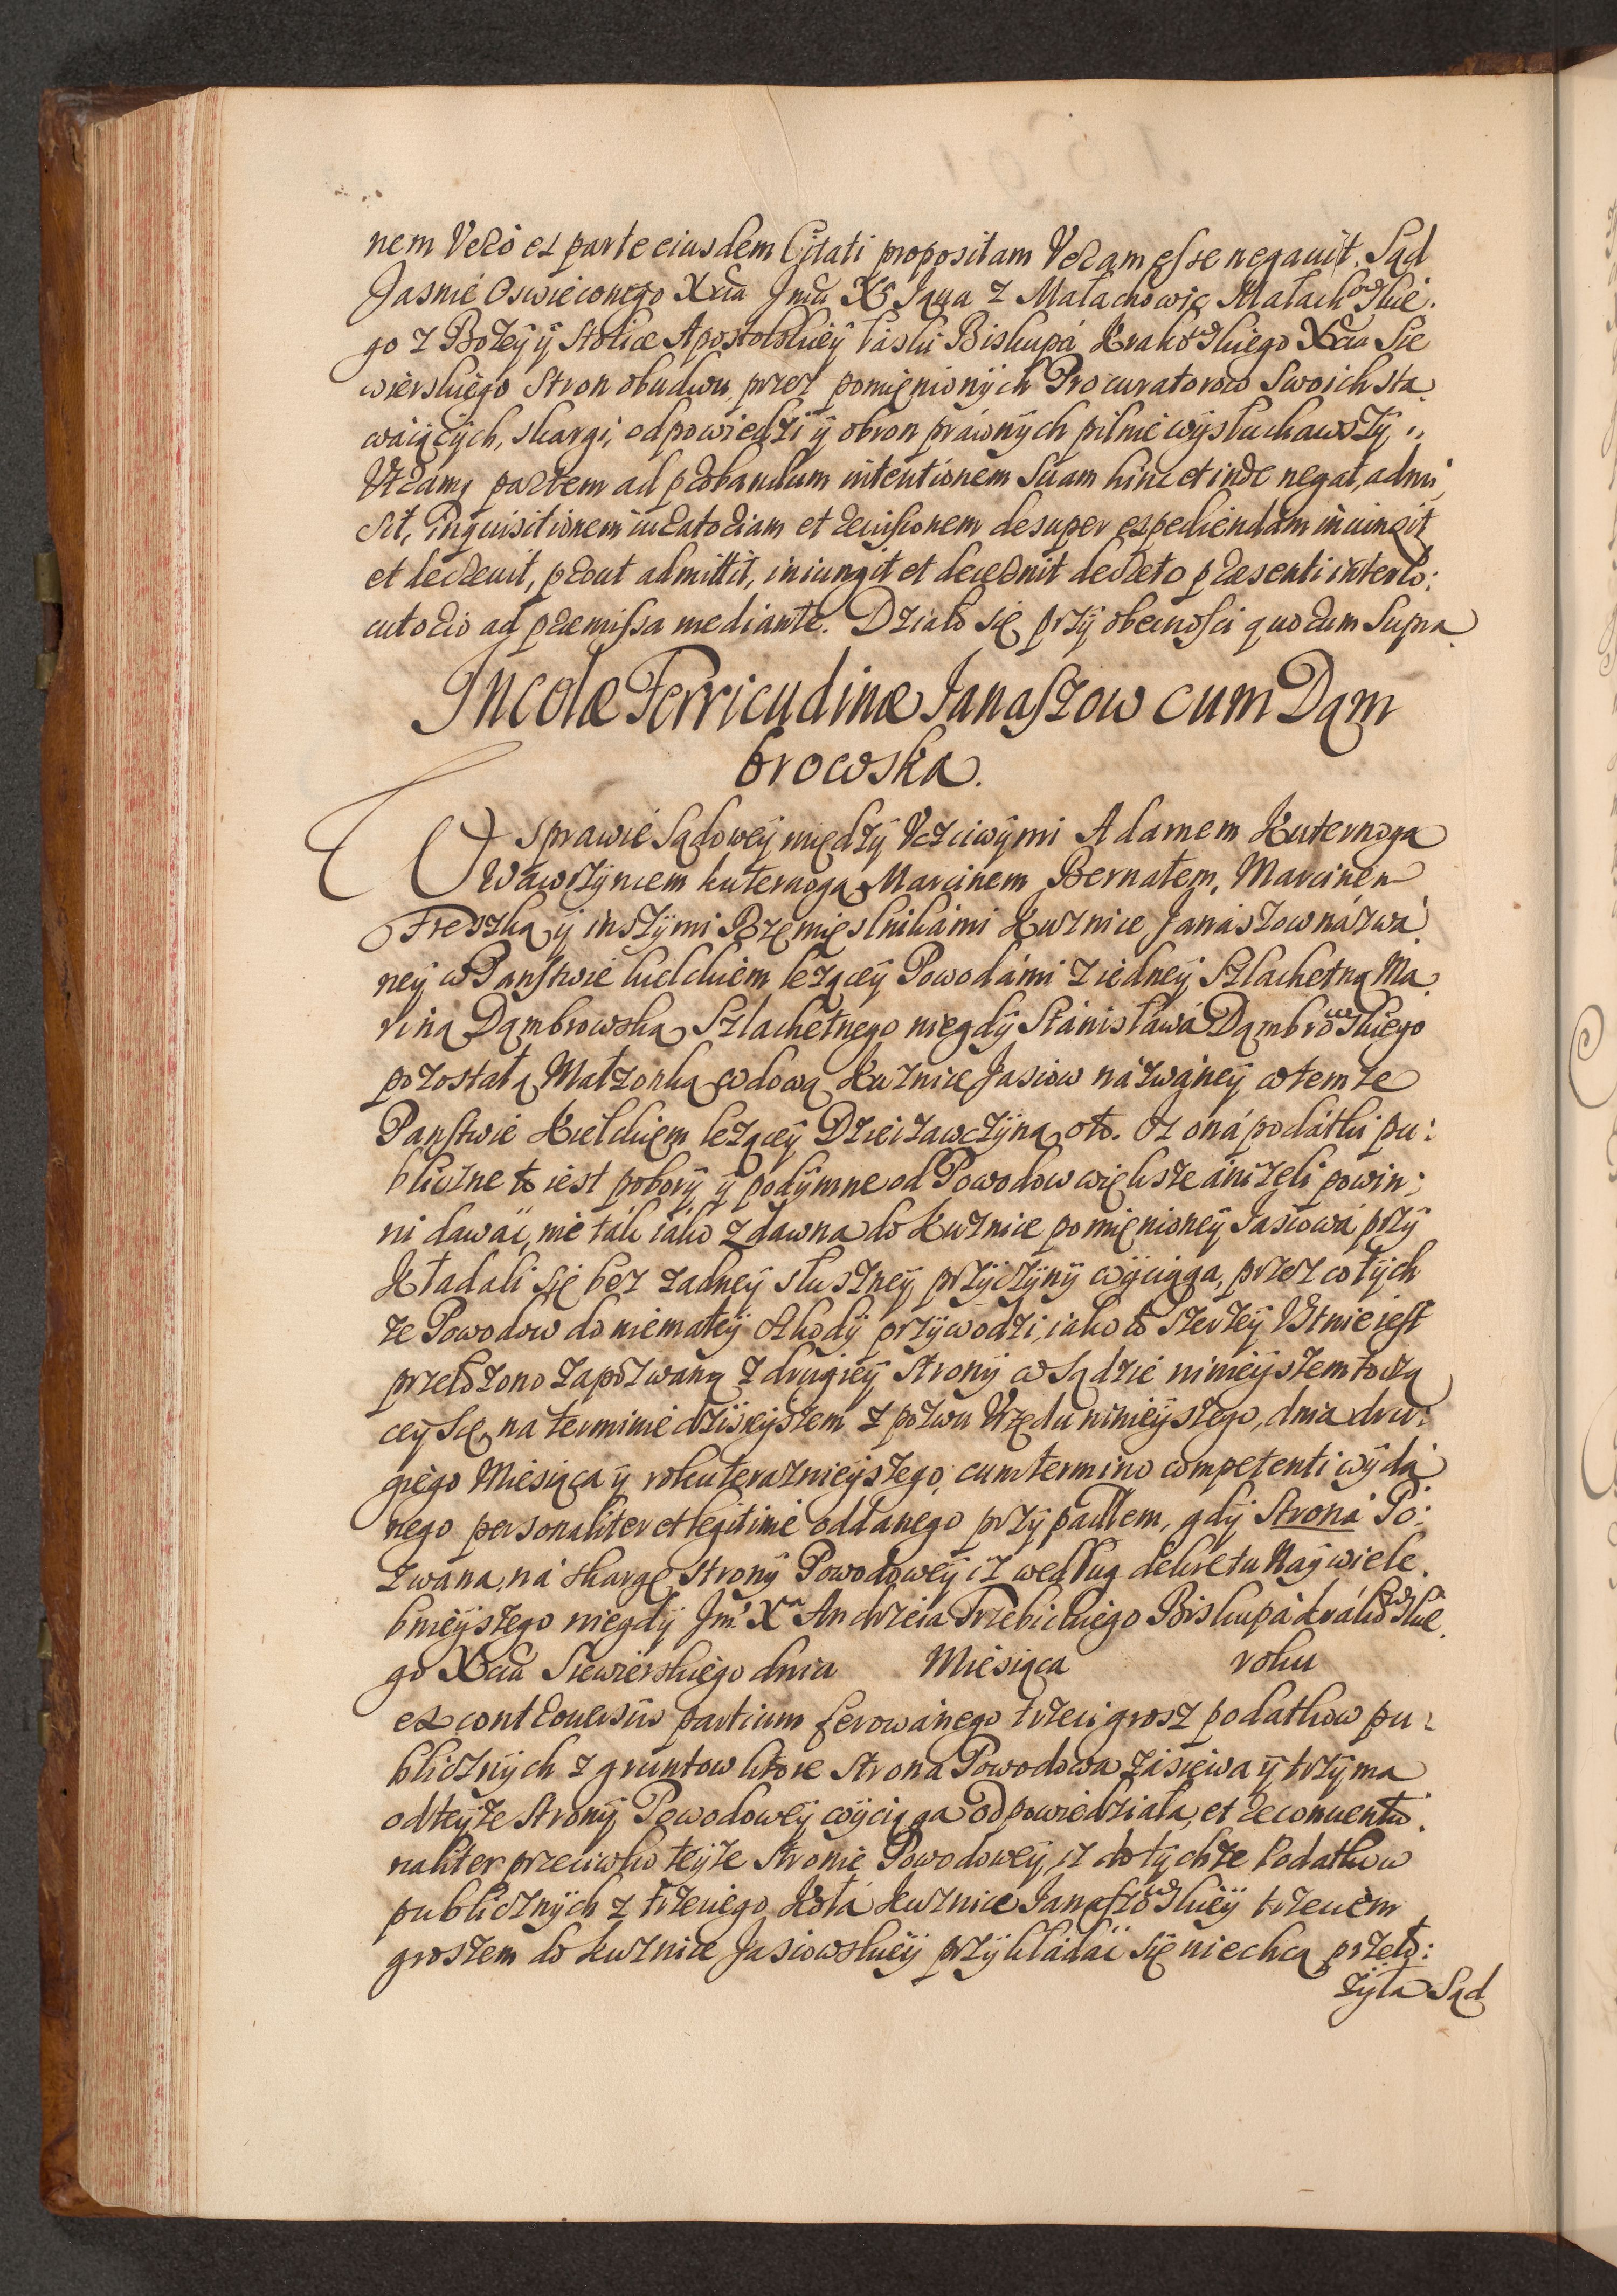 nem Vero ex parte eiusdem Citati propositam Veram esse negauit. Sąd
Jasnie Oswieconego Xcia Jmci X Jana z Małachowic Małachowskie.
go z Bożey ÿ Stolice Apostolskieÿ łaski Biskupá Krakowskiego Xcia Sie
wierskiego Stron obudwu przez pomięnionÿch Procuratorow swoich sta.
waiącÿch, skargi, odpowiedzi ÿ obron práwnÿch pilnie wÿsłuchawszÿ,
Vtramq partem ad probandum intentionem suam hinc et inde negat, admi
sit, inquisitionem iuratoriam et revisionem desuper expediendam iniunxit
et decreuit, prout admittit, iniungit et decernit decreto præsenti interlo:
cutorio ad præmissa mediante. Działo się przÿ obecnosci quorum supra
Incolæ Ferricudinæ Janaszow cum Dąm
browska.
W sprawie Sądoweÿ międzÿ Vczciwÿmi Adamem Kuternoga
Wawrzÿncem kuternogą Marcinem Bernatem, Marcinem
Freszką ÿ inszÿmi Rzemięslnikámi Kuznice Janaszow názwá.
neÿ w Panstwie kielckiem leżąceÿ Powodámi z iedneÿ Szlachetną Ma.
riną Dąmbrowską Szlachetnego niegdÿ Stánisławá Dąmbrowskiego
pozostałą Małzonką wdową Kuznice Jasiow názwáneÿ w temze
Panstwie Kielckiem leżąceÿ Dzierzawczÿną oto. Iz oná podátki pu:
bliczne to iest poborÿ ÿ podÿmne od Powodow większe ániżeli powin:
ni dawáć, nie ták iáko z dawna do Kuznice pomięnioneÿ Jasiowá przÿ
Kładali się bez zadneÿ słuszneÿ przÿczÿnÿ wÿciąga, przez co tÿch
ze Powodow do niemałeÿ szkodÿ przÿwodzi, iako to szerzeÿ Vstnie iest
przełożono zapozwaną z drugieÿ stronÿ w Sądzie ninieÿszem tocżą
ceÿ się, na terminie dzisieÿszem z pozwu Vrzędu ninieÿszego, dnia dru:
giego Miesiąca ÿ roku teraznieÿszego, cum termino competenti wÿdá
nego personaliter et legitime oddanego przÿpadłem, gdÿ Stroná Po:
zwana, ná skargę Stronÿ Powodoweÿ iz według dekretu Naÿwiele.
bnieÿszego niegdÿ Jm. Xa Andrzeia Trzebickiego Biskupá krákowskie.
go Xcia Siewierskiego dnia Miesiąca roku
ex controuersÿs partium ferowánego trzeci grosz podatkow pu:
blicznÿch z gruntow ktore Strona Powodowa zásiewa ÿ trzÿma
odteÿże Stronÿ Powodoweÿ wÿciąga odpowiedziała, et reconuentio.
naliter przeciwko teÿże stronie Powodoweÿ, iz do tÿchże Podatkow
publicznÿch z trzeciego Kołá Kuznice Janaszowskieÿ trzecim
groszem do kuznice Jasiowskieÿ przÿkładáć się niechcą przeło:
żÿła Sąd